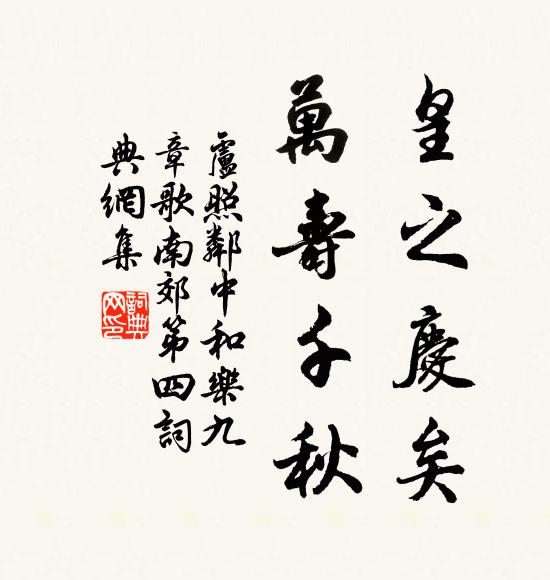 皇之慶矣
萬壽千秋
盧照鄰中和樂九
章歌南郊第四詞
典網集
詞典
网印